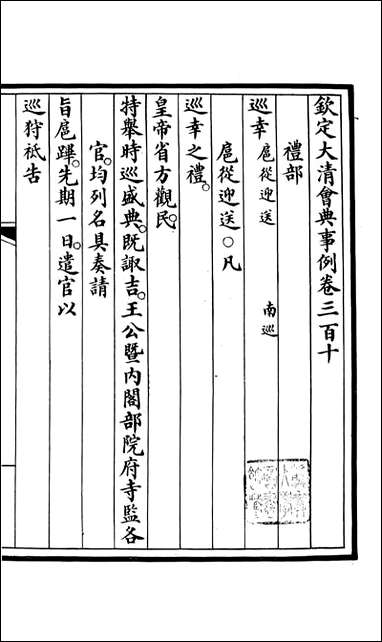 欽定大清會典事例卷三百十
禮部
巡幸 扈從迎送 南巡
扈從迎送○凡
巡幸之禮。
皇帝省方觀民。
特舉時巡盛典。既諏吉。王公暨內閣部院府寺監各
官。均列名具奏請
旨扈蹕。先期一日。遣官以
巡狩祗告